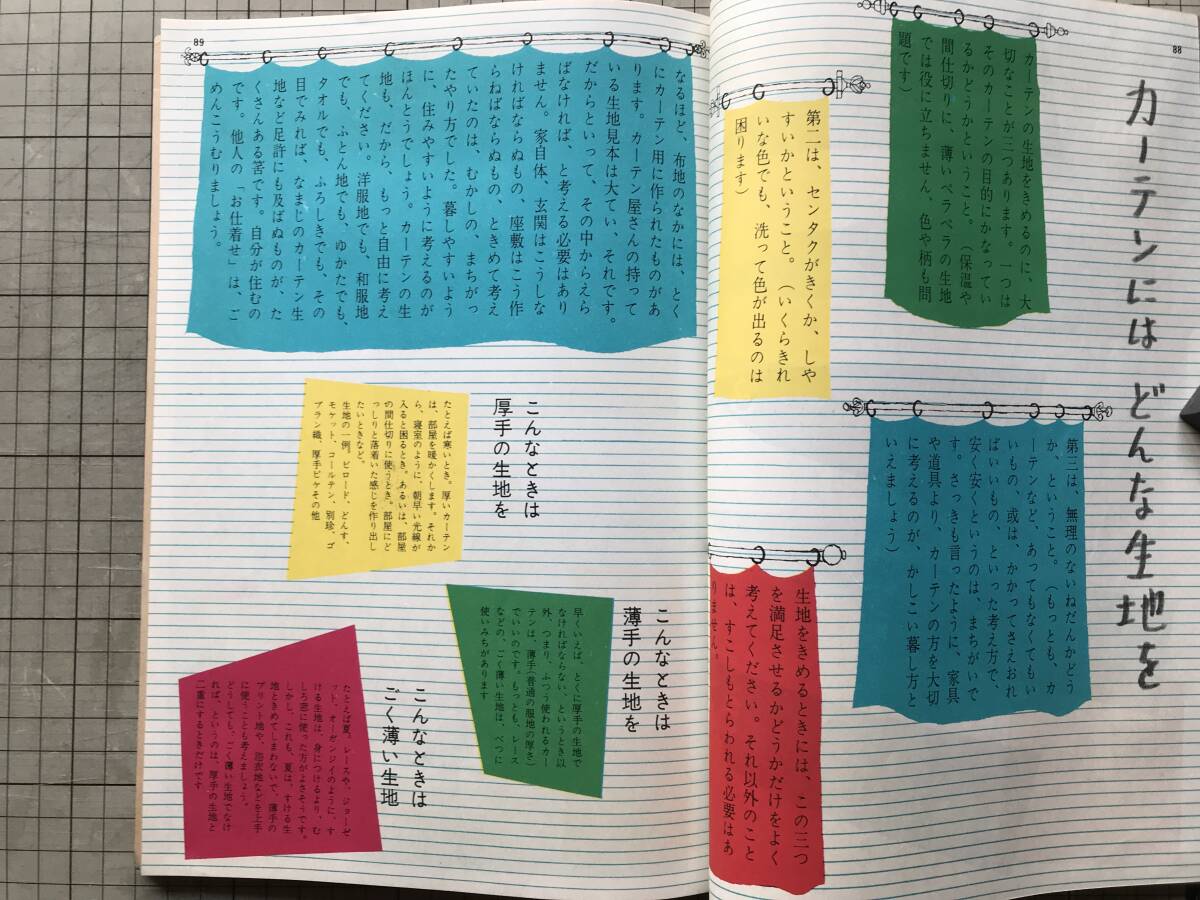 88
カーテンには どんな生地を
カーテンの生地をきめるのに、大
切なことが三つあります。一つは
そのカーテンの目的にかなってい
るかどうかということ。（保温や
間仕切りに、薄いペラペラの生地
では役に立ちません、色や柄も問
題です）
第二は、センタクがきくか、しや
すいかということ。（いくらきれ
いな色でも、洗って色が出るのは
困ります）
第三は、無理のないねだんかどう
か、ということ。（もっとも、カ
ーテンなど、あってもなくてもい
いもの、或は、かかってさえおれ
ばいいもの、といった考え方で、
安く安くというのは、まちがいで
す。さっきも言ったように、家具
や道具より、カーテンの方を大切
に考えるのが、かしこい暮し方と
いえましょう）
生地をきめるときには、この三つ
を満足させるかどうかだけをよく
考えてください。それ以外のこと
は、すこしもとらわれる必要はあ
りません。
89
なるほど、布地のなかには、とく
にカーテン用に作られたものがあ
ります。カーテン屋さんの持って
いる生地見本は大てい、それです。
だからといって、その中からえら
ばなければ、と考える必要はあり
ません。家自体、玄関はこうしな
ければならぬもの、座敷はこう作
らねばならぬもの、ときめて考え
ていたのは、むかしの、まちがっ
たやり方でした。暮しやすいよう
に、住みやすいように考えるのが
ほんとうでしょう。カーテンの生
地も、だから、もっと自由に考え
てください。洋服地でも、和服地
でも、ふとん地でも、ゆかたでも、
タオルでも、ふろしきでも、その
目でみれば、なまじのカーテン生
地など足許にも及ばぬものが、た
くさんある筈です。自分が住むの
です。他人の「お仕着せ」は、ご
めんこうむりましょう。
こんなときは
厚手の生地を
たとえば寒いとき。厚いカーテン
は、部屋を暖かくします。それか
ら、寝室のように、朝早い光線が
入ると困るとき。あるいは、部屋
の間仕切りに使うとき。部屋にど
っしりと落着いた感じを作り出し
たいときなど。
生地の一例。ビロード、どんす、
モケット、コールテン、別珍、ゴ
ブラン織、厚手ピケその他
こんなときは
薄手の生地を
早くいえば、とくに厚手の生地で
なければならない、というとき以
外、つまり、ふつう使われるカー
テンは、薄手（普通の服地の厚さ）
でいいのです。もっとも、レース
などの、ごく薄い生地は、べつに
使いみちがあります
こんなときは
ごく薄い生地
たとえば夏。レースや、ジョーゼ
ット、オーガンジイのように、す
ける生地は、身につけるより、む
しろ窓に使った方がよさそうです。
しかし、これも、夏は、すける生
地ときめてしまわないで、薄手の
プリント地や、浴衣地などを上手
に使うことも考えましょう。
どうしても、ごく薄い生地でなけ
れば、というのは、厚手の生地と
二重にするときだけです